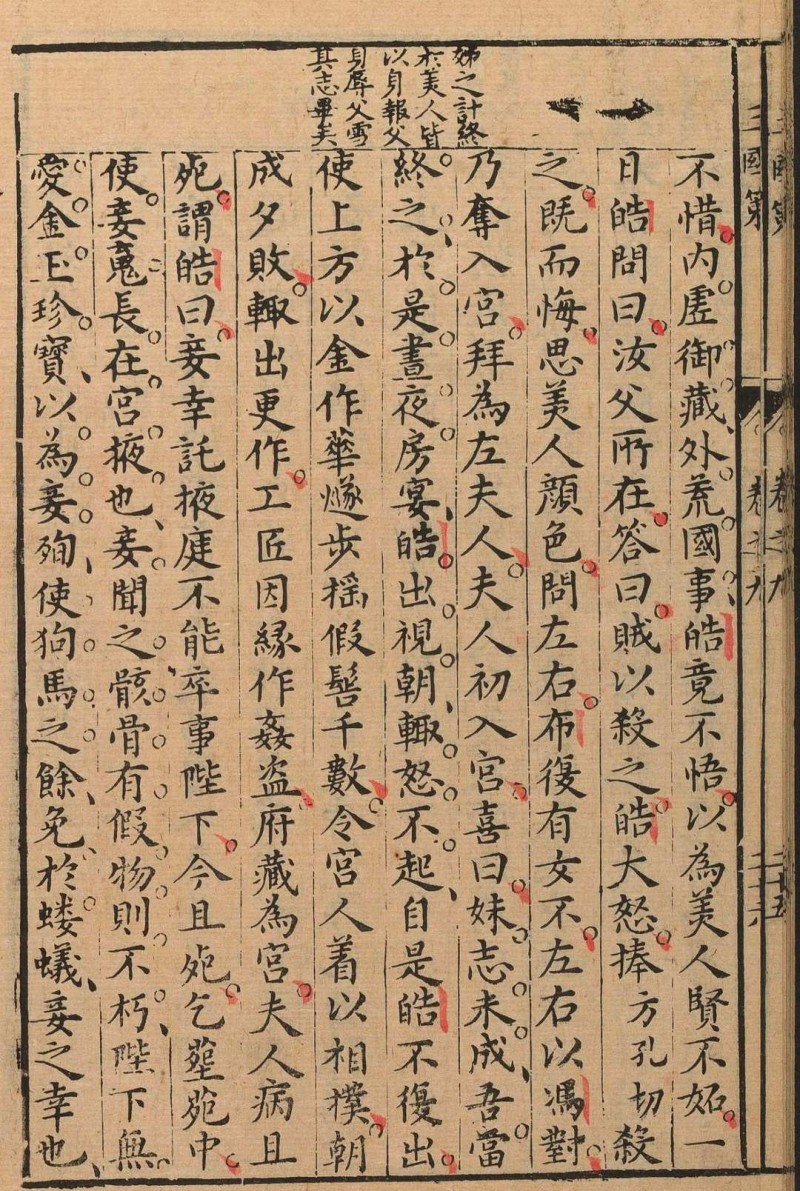 姊之計終
於美人皆
以身報父
身辱父雪
其志畢矣
三國第
卷之九
二十六
不惜内虛御藏外荒國事皓竟不悟以為美人賢不妬一
日皓問曰汝父所在答曰賊以殺之皓大怒捧方孔切殺
之既而悔思美人顔色問左右布復有女不左右以馮對
乃奪入宮拜為左夫人夫人初入宮喜曰妹志未成吾當
終之於是晝夜房宴皓出視朝輙怒不起自是皓不復出
使上方以金作華燧步揺假髻千數令宮人着以相撲朝
成夕敗輙出更作工匠因緣作姦盗府藏為宮夫人病且
死謂皓曰妾幸託掖庭不能卒事陛下今且死乞塟苑中
使妾䰟長在宮掖也妾聞之骸骨有假物則不朽陛下無
愛金玉珍寳以為妾殉使狗馬之餘免於螻蟻妾之幸也